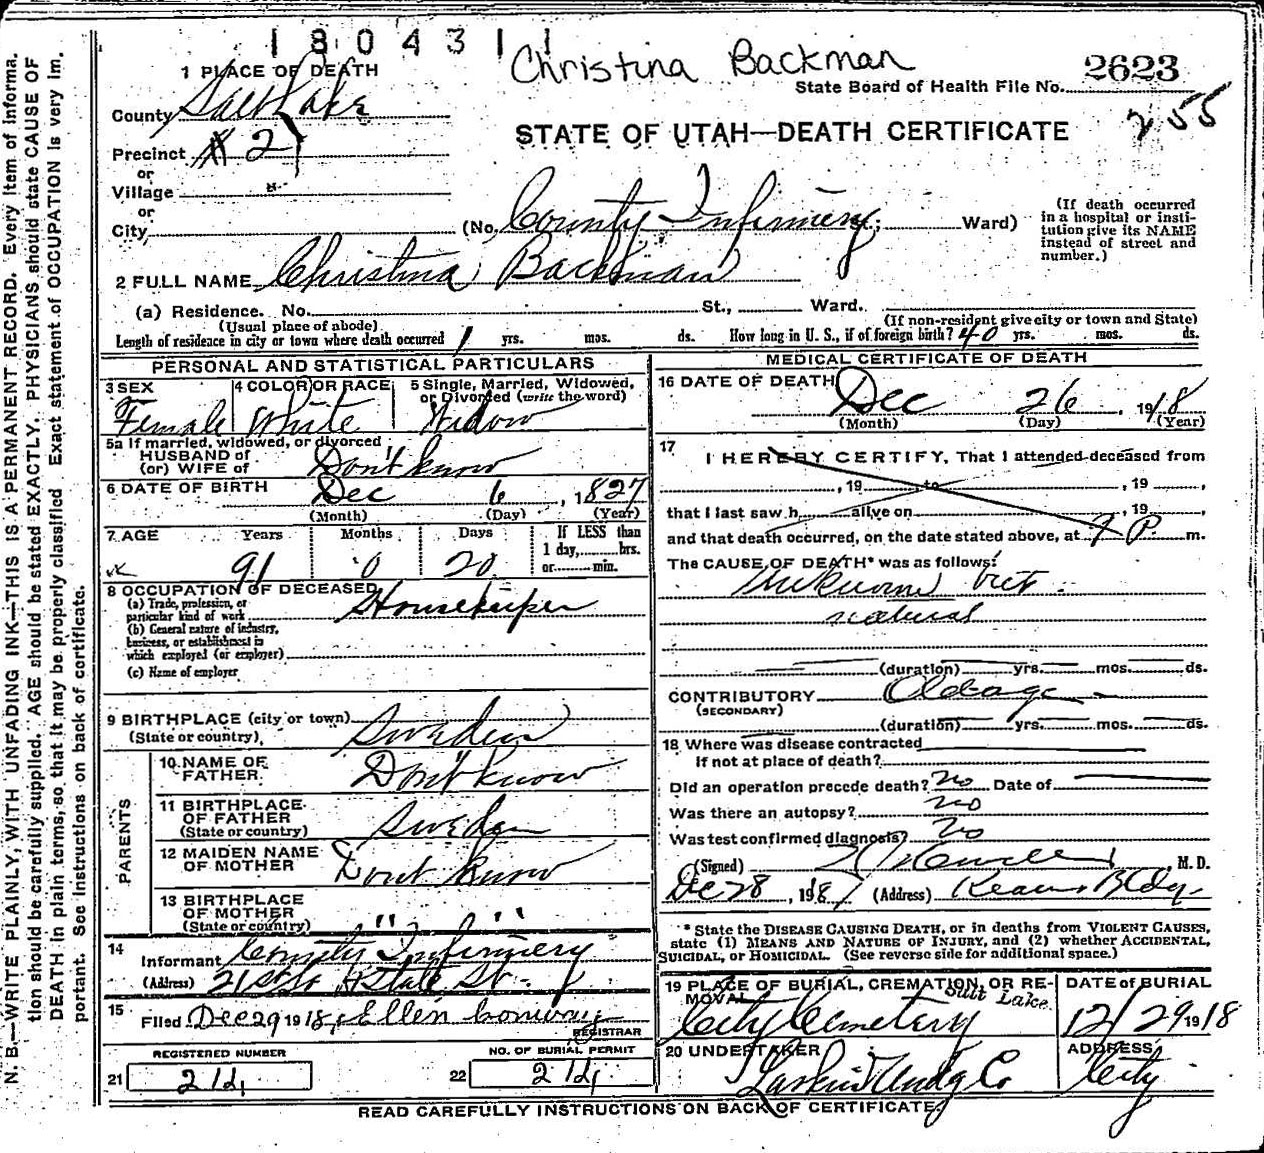 1804311
Christina Backman
2623
State Board of Health File No.
255
1 PLACE OF DEATH
County Salt Lake
STATE OF UTAH—DEATH CERTIFICATE
Precinct # 2
or
Village
or
City
(No. County Infirmery; Ward)
(If death occurred in a hospital or insti-
tution give its NAME
instead of street and
number.)
2 FULL NAME Christina Backman
(a) Residence. No. St., Ward.
(Usual place of abode)
(If non-resident give city or town and State)
Length of residence in city or town where death occurred 1 yrs. mos. ds. How long in U. S., if of foreign birth? 40 yrs. mos. ds.
PERSONAL AND STATISTICAL PARTICULARS
3 SEX
Female
4 COLOR OR RACE
White
5 Single, Married, Widowed,
or Divorced (write the word)
Widow
5a If married, widowed, or divorced
HUSBAND of
(or) WIFE of Don't know
6 DATE OF BIRTH Dec 6, 1827
(Month) (Day) (Year)
7 AGE Years Months Days
91 0 20
If LESS than
1 day, hrs.
or min.
8 OCCUPATION OF DECEASED
(a) Trade, profession, or
particular kind of work Housekeeper
(b) General nature of industry,
business, or establishment in
which employed (or employer)
(c) Name of employer
9 BIRTHPLACE (city or town)
(State or country) Sweden
PARENTS
10 NAME OF
FATHER Don't know
11 BIRTHPLACE
OF FATHER
(State or country) Sweden
12 MAIDEN NAME
OF MOTHER Dont know
13 BIRTHPLACE
OF MOTHER
(State or country) " "
14
Informant County Infirmery
(Address) State St.
15
Filed Dec 29 1918, Ellen Conway
REGISTRAR
REGISTERED NUMBER
21 214
NO. OF BURIAL PERMIT
22 214
MEDICAL CERTIFICATE OF DEATH
16 DATE OF DEATH
Dec 26, 1918
(Month) (Day) (Year)
17
I HEREBY CERTIFY, That I attended deceased from
, 19 to , 19 ,
that I last saw h alive on , 19 ,
and that death occurred, on the date stated above, at 7 P. m.
The CAUSE OF DEATH* was as follows:
Unknown but
natural
(duration) yrs. mos. ds.
CONTRIBUTORY Old age
(SECONDARY)
(duration) yrs. mos. ds.
18 Where was disease contracted
If not at place of death?
Did an operation precede death? no Date of
Was there an autopsy? no
Was test confirmed diagnosis? No
(Signed) M. D.
Dec 28, 198 (Address) Kearns Bldg.
* State the DISEASE CAUSING DEATH, or in deaths from VIOLENT CAUSES,
state (1) MEANS AND NATURE OF INJURY, and (2) whether ACCIDENTAL,
SUICIDAL, or HOMICIDAL. (See reverse side for additional space.)
19 PLACE OF BURIAL, CREMATION, OR RE-
MOVAL
Salt Lake
City Cemetery
DATE of BURIAL
12/29 1918
20 UNDERTAKER
Larkin Undg Co
ADDRESS
City
READ CAREFULLY INSTRUCTIONS ON BACK OF CERTIFICATE.
N. B.—WRITE PLAINLY, WITH UNFADING INK—THIS IS A PERMANENT RECORD. Every item of Informa-
tion should be carefully supplied. AGE should be stated EXACTLY. PHYSICIANS should state CAUSE OF
DEATH in plain terms, so that it may be properly classified. Exact statement of OCCUPATION is very im-
portant. See instructions on back of certificate.